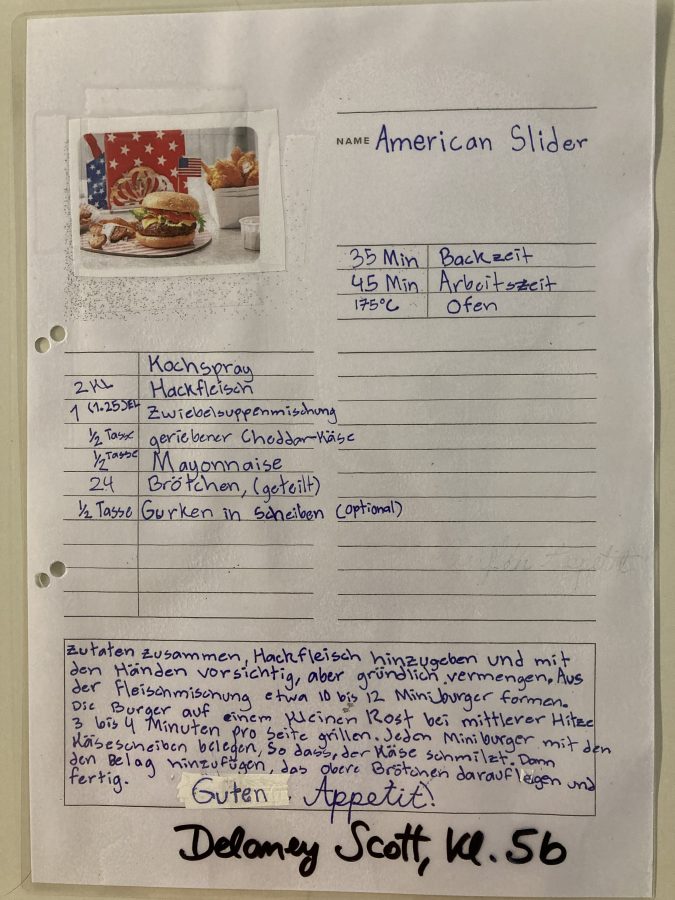 NAME American Slider
35 Min Backzeit
45 Min Arbeitszeit
175°C Ofen
Kochspray
2 KL Hackfleisch
1 (1.25) EL Zwiebelsuppenmischung
1/2 Tasse geriebener Cheddar-Käse
1/2 Tasse Mayonnaise
24 Brötchen, (geteilt)
1/2 Tasse Gurken in Scheiben (optional)
Zutaten zusammen, Hackfleisch hinzugeben und mit
den Händen vorsichtig, aber gründlich vermengen. Aus
der Fleischmischung etwa 10 bis 12 Miniburger formen.
Die Burger auf einem kleinen Rost bei mittlerer Hitze
3 bis 4 Minuten pro seite grillen. Jeden Miniburger mit den
Käsescheiben belegen, so dass, der Käse schmilzt. Dann
den Belag hinzufügen, das obere Brötchen darauf legen und
fertig.
Guten Appetit!
Delaney Scott, Kl. 5b